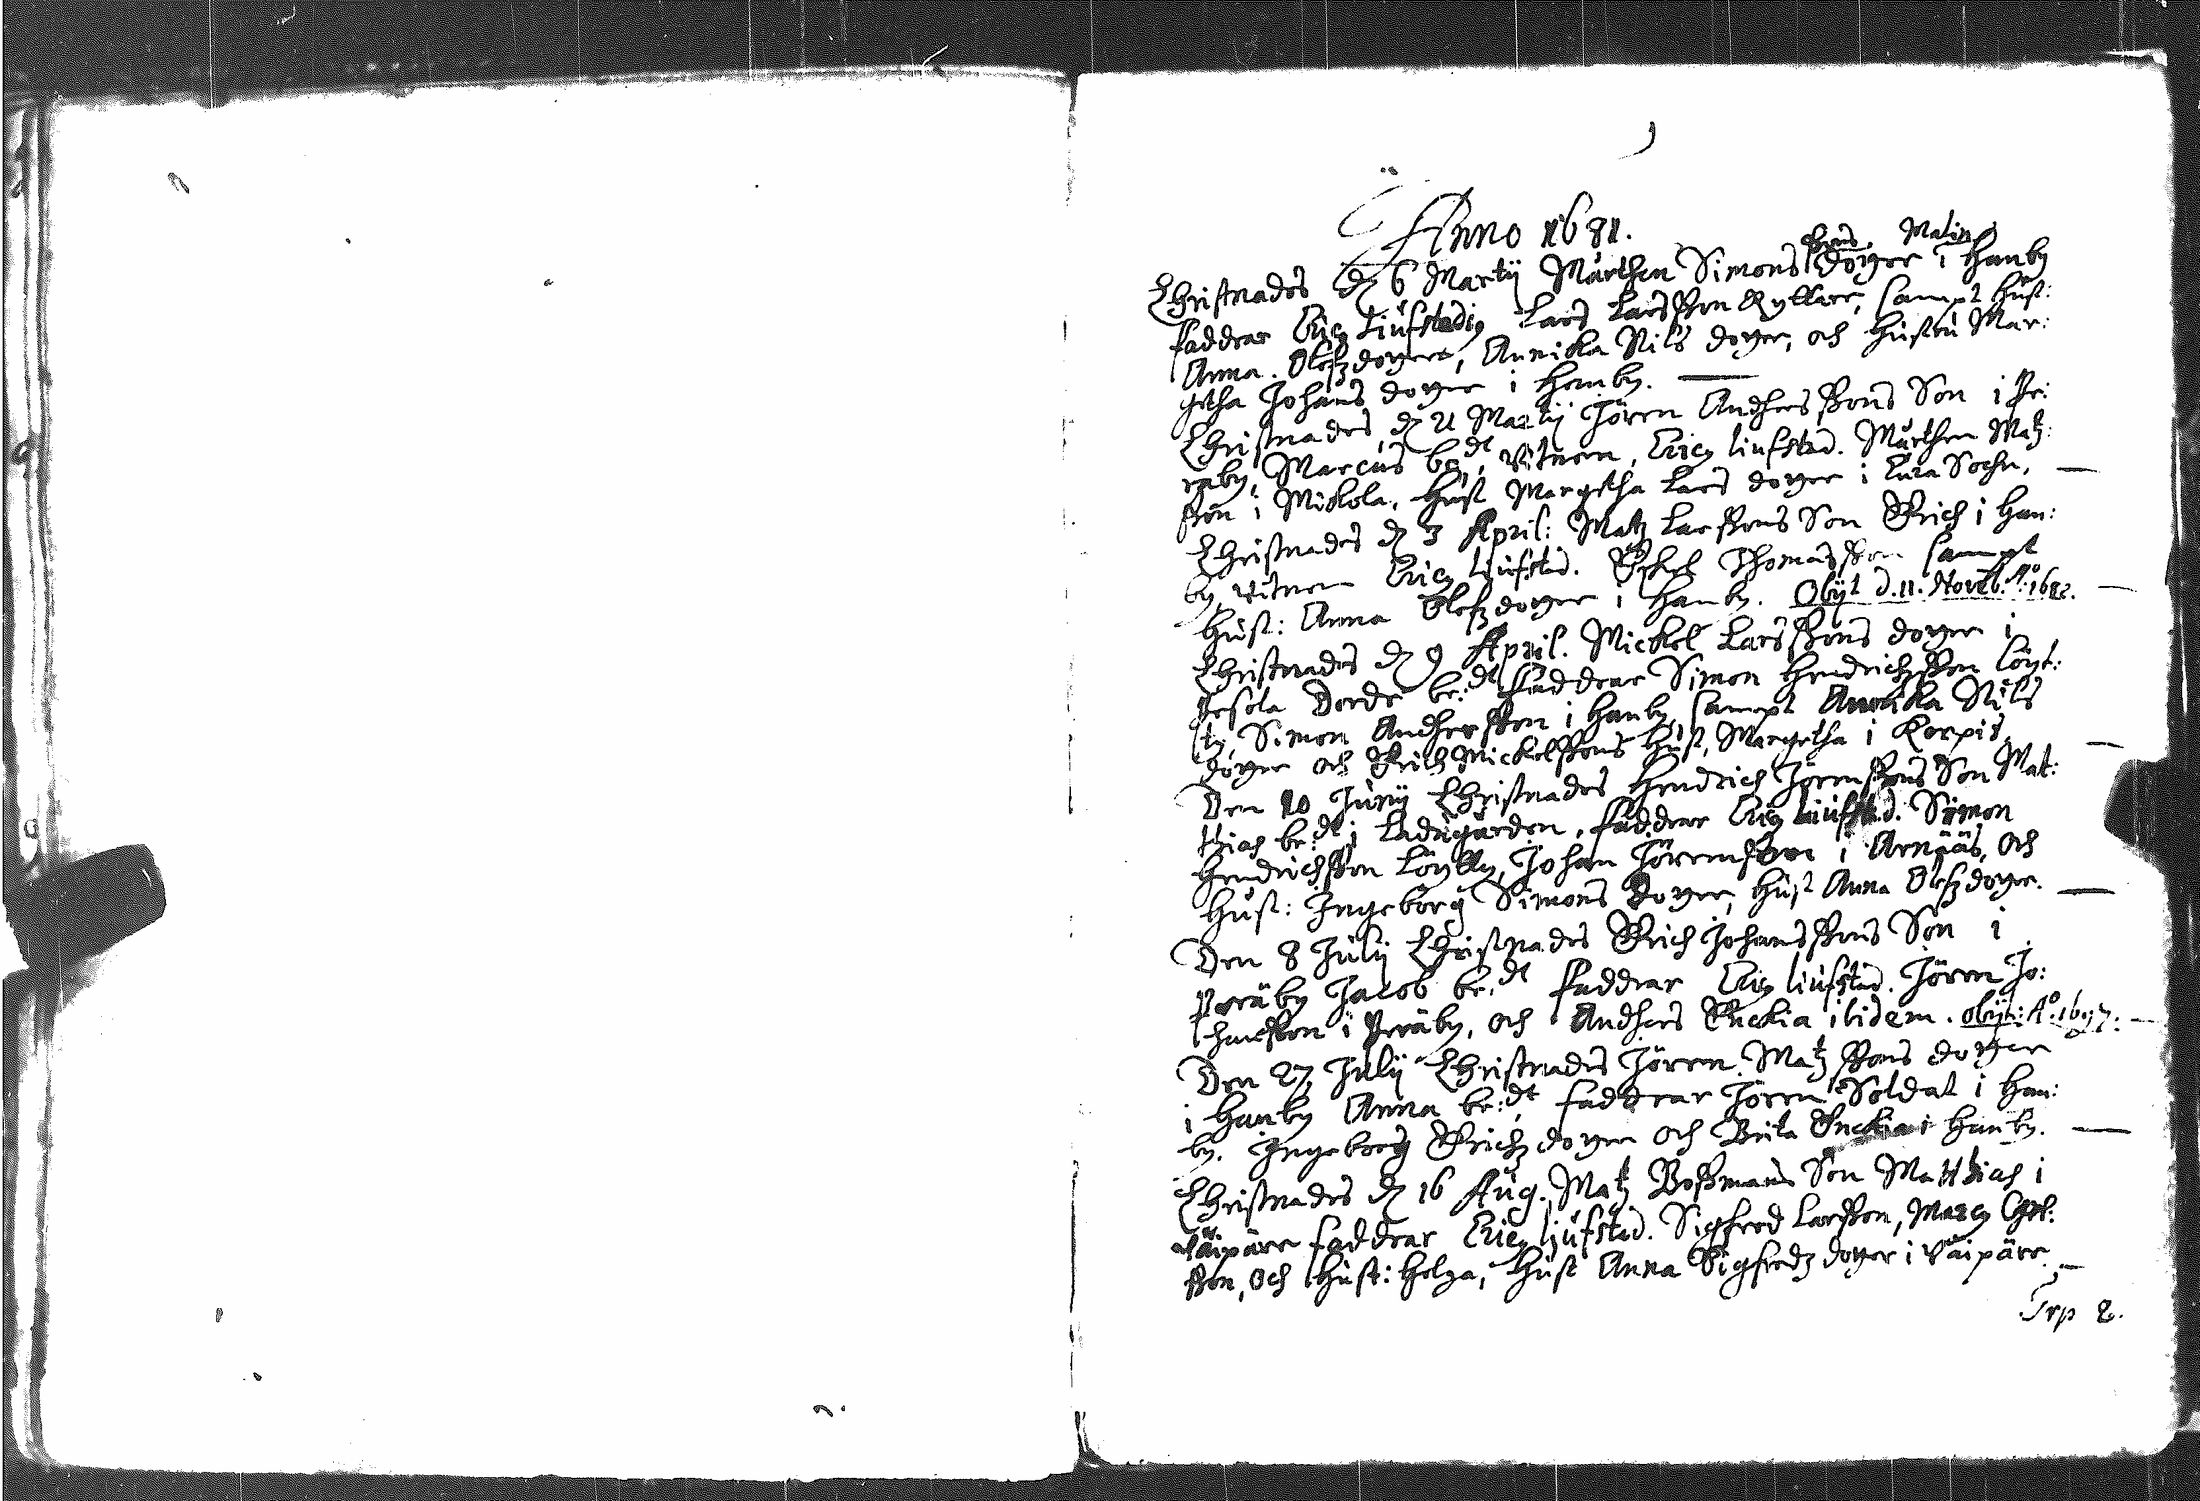 Anno 1681.
Christnades dn 6 Martij Mårthen Simons ßons Malin doger i Hanby
faddrar Eric Liufstadig Lars Larsßon Ryttare, sampt hust:
Anna Olefzdoger, Annika Nils doger, och hustru Mar:
getha Johans doger i Hanby.
Christnades dn 21 Martij Jören Anders ßons Son i Pe:
räby, Marcus be:dt, vitnen, Eric liufstad. Mårthen Matz:
ßon i Miskola, hust Margetha Lars doger i Sochn,
Christnades dn 3 April: Matz Larßons Son Erich i Han:
by vitnen Eric liufstad. Eskel Thomasßon sampt
hust: Anna Olefzdoger i Hanby. Obijt d. 11. Noveb. Ao: 1682.
Christnades dn 9 April. Mickel Larsßons doger i
Dorde be:dt faddrar Simon Hendrichßon Löyt:
ty, Simon Andersßon i Hanby, sampt Annika Nils
doger och Erich Mickelßons hust, Margetha i Korpis,
Den 10 Junij Christnades Hendrich Jörenßons Son Mat:
thias be:dt i Ladugården, faddrar Eric liufstad. Simon
Hendrichßon Löytty, Johan Jörenßon i Arnääs, och
hust: Ingeborg Simons doger, hust Anna Olefzdoger.
Den 8 Julij Christnades Erich Johansßons Son i
Peräby Jacob be:dt faddrar Eric liufstad. Jören Jo:
hansßon i Peräby, och Anders Ruckia ibidem. obijt: Ao. 1697.
Den 27 Julij Christnades Jören Matzßons doger
i Hanby Anna be:dt faddrar Jören Soldat i Han:
by. Ingeborg Erichz doger och Brita Ruckia i Hanby.
Christnades dn 16 Aug. Matz Boßmans Son Matthias i
Väipäre faddrar Eric liufstad. Sigfred Larßon, Marc
ßon, och hust: Helga, hust Anna Sigfredz doger i Väipäre.